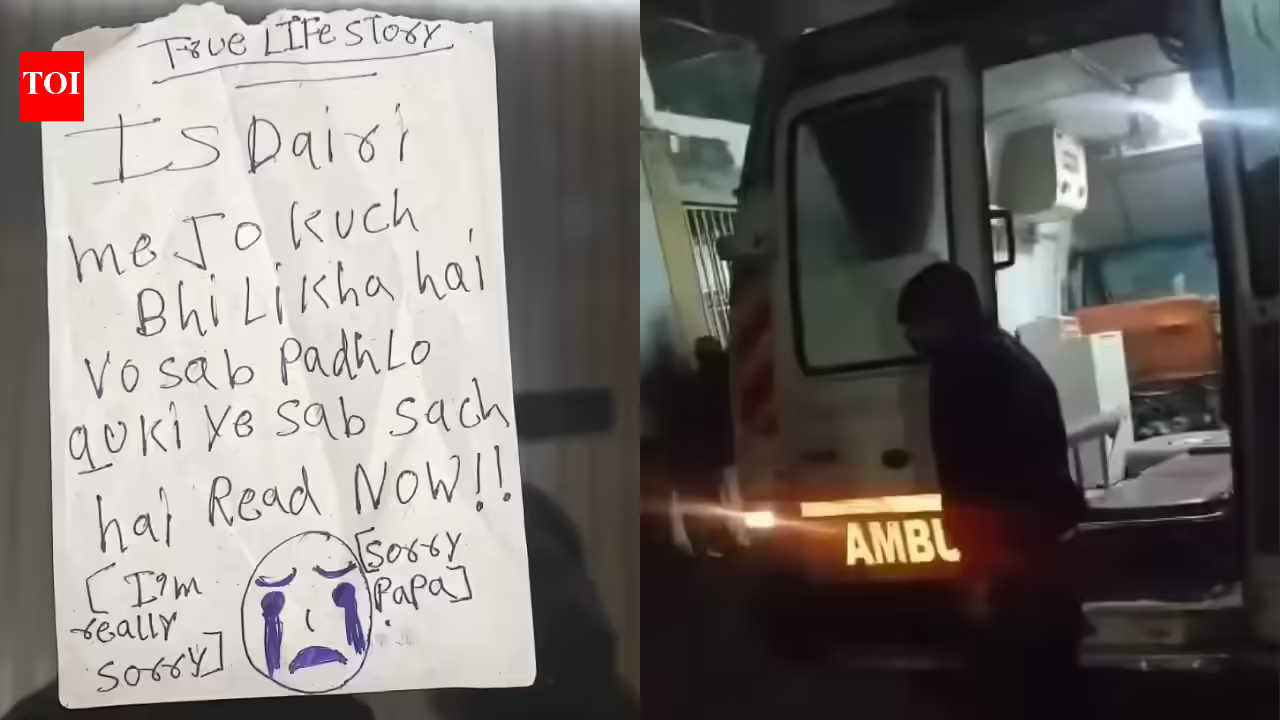 TOI
TRUE LIFE STORY
IS Dairi
me Jo kuch
Bhi Likha hai
Vo sab Padh Lo
quki ye sab sach
hai Read NOW!!
[Sorry
Papa]
[I'm
really
sorry]
AMBU